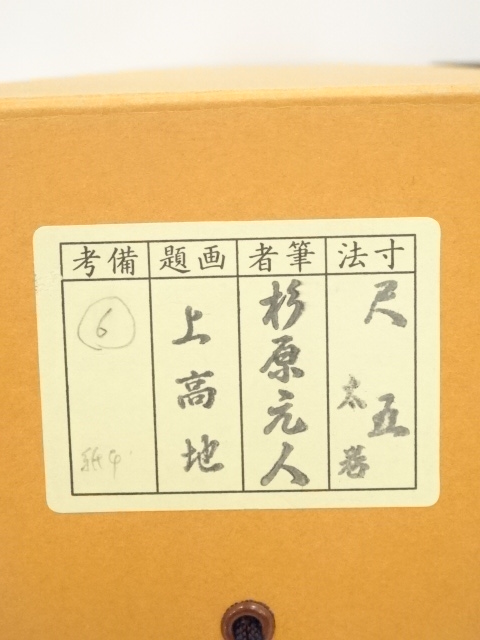 寸法
筆者
画題
備考
尺五
太巻
杉原元人
上高地
6